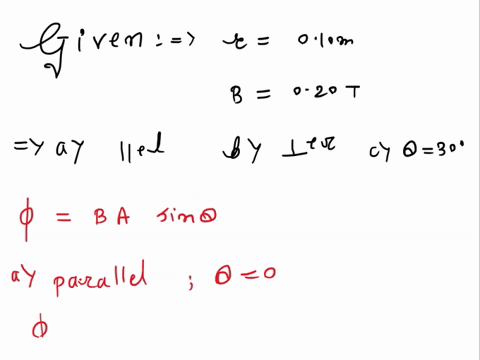 Given :=> r = 0.10m
B = 0.20 T
=> a) ||el b) ⊥er c) θ = 30°
ϕ = BA sinθ
a) parallel ; θ = 0
ϕ